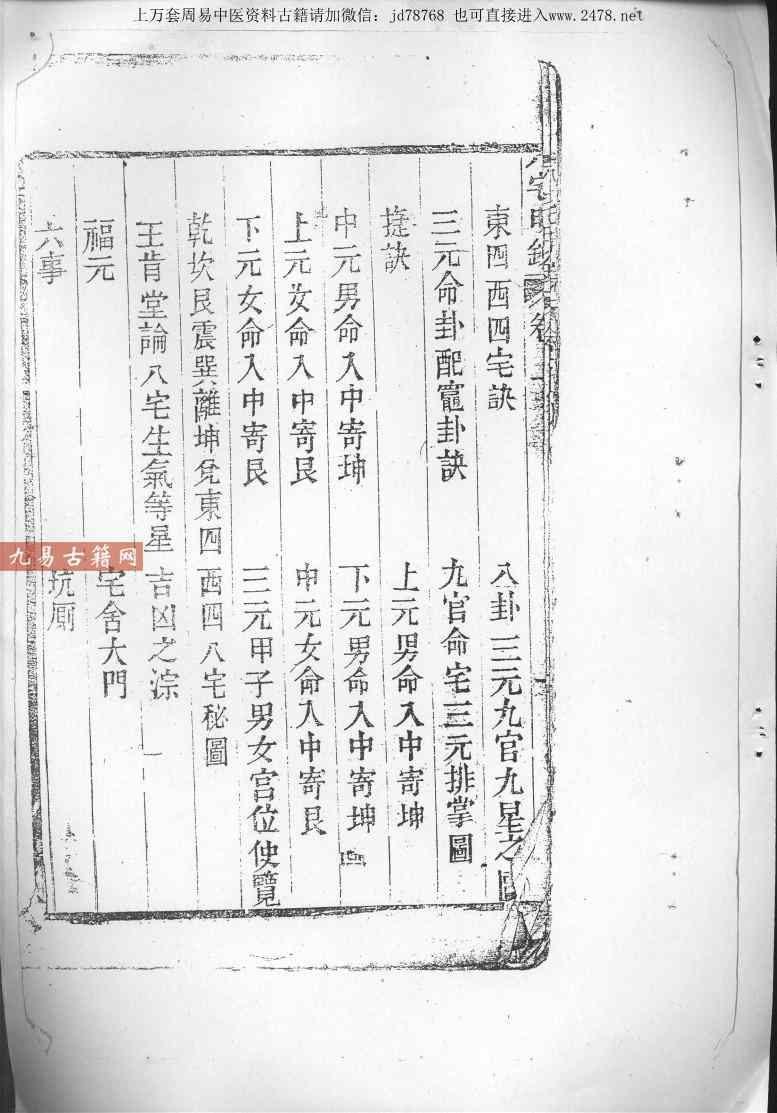 上万套周易中医资料古籍请加微信：jd78768 也可直接进入www.2478.net
宅明
東四西四宅訣
八卦三元九宫九星之
三元命卦配竈卦訣
九宫命宅三元排掌圖
捷訣
上元男命入中寄坤
中元男命入中寄坤
下元男命入中寄坤
上元女命入中寄艮
中元女命入中寄艮
下元女命入中寄艮
三元甲子男女宫位使覽
乾坎艮震巽離坤兌東四
西四八宅秘圖
王肯堂論八宅生氣等星
吉凶之淙
福元
宅舍大門
六事
坑厠
九易古籍网